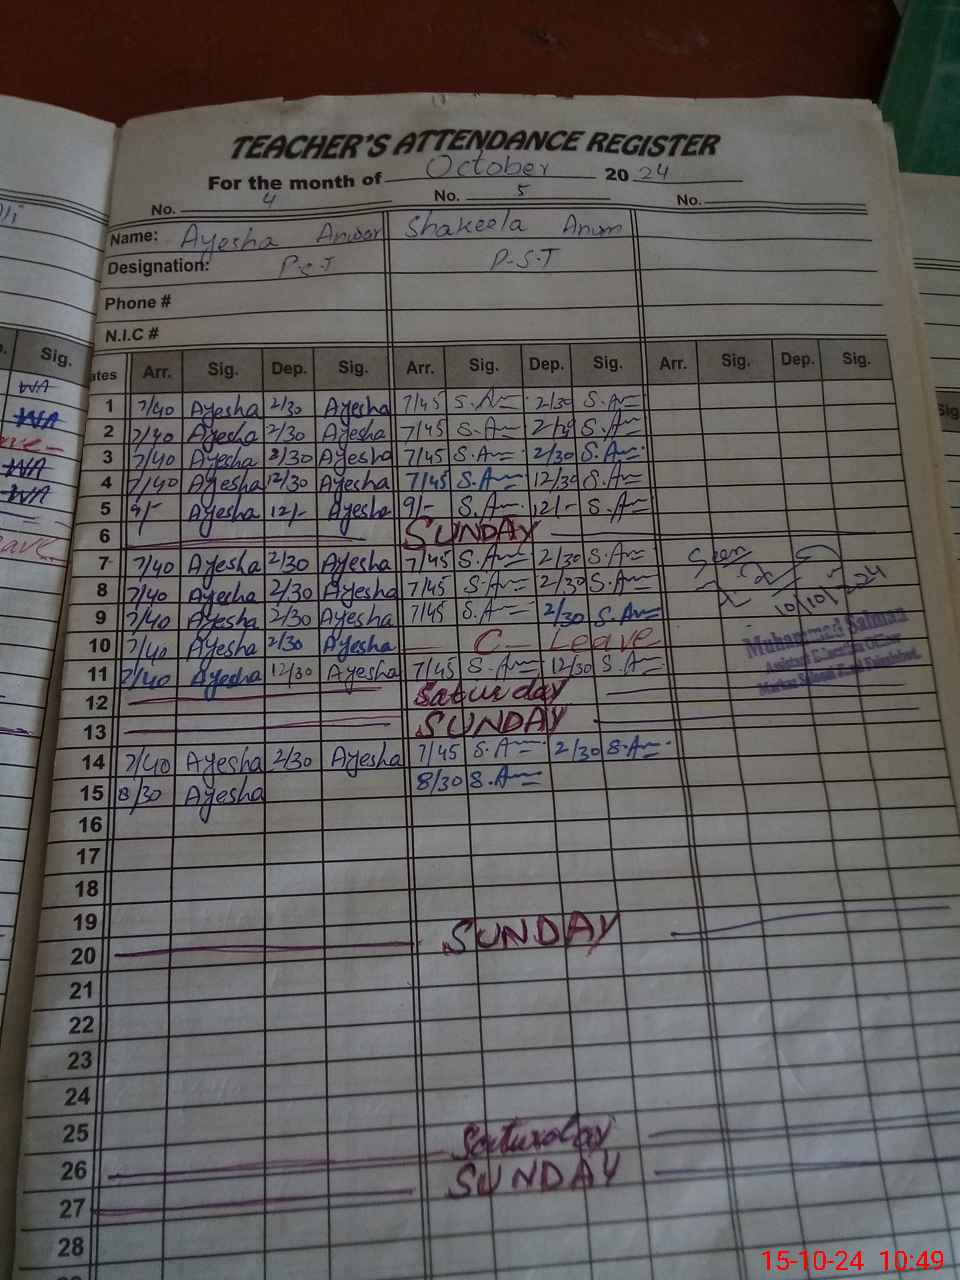 TEACHER'S ATTENDANCE REGISTER
For the month of October 2024
No. 4 No. 5 No.
Name: Ayesha Anwar Shakeela Anum
Designation: P.S.T P-S-T
Phone #
N.I.C #
ates Arr. Sig. Dep. Sig. Arr. Sig. Dep. Sig. Arr. Sig. Dep. Sig.
1 7/40 Ayesha 2/30 Ayesha 7/45 S.A 2/30 S.A
2 7/40 Ayesha 2/30 Ayesha 7/45 S.A S.A
3 7/40 Ayesha 2/30 Ayesha 7/45 S.A 2/30 S.A
4 7/40 Ayesha 12/30 Ayesha 7/45 S.A 12/30 S.A
5 9/- Ayesha 12/- Ayesha 9/- S.A 12/- S.A
6 SUNDAY
7 7/40 Ayesha 2/30 Ayesha 7/45 S.A 2/30 S.A
8 7/40 Ayesha 2/30 Ayesha 7/45 S.A 2/30 S.A
9 7/40 Ayesha 2/30 Ayesha 7/45 S.A 2/30 S.A
10 7/40 Ayesha 2/30 Ayesha C- Leave
11 7/40 Ayesha 12/30 Ayesha 7/45 S.A 12/30 S.A
12 Saturday
13 SUNDAY
14 7/40 Ayesha 2/30 Ayesha 7/45 S.A 2/30 S.A
15 8/30 Ayesha 8/30 S.A
16
17
18
19
20 SUNDAY
21
22
23
24
25
26 Saturday
27 SUNDAY
28
Seen
10/10/24
Muhammad Salman
Assistant Education Officer
Sig.
WA
WA
WA
WA
Sig
15-10-24 10:49